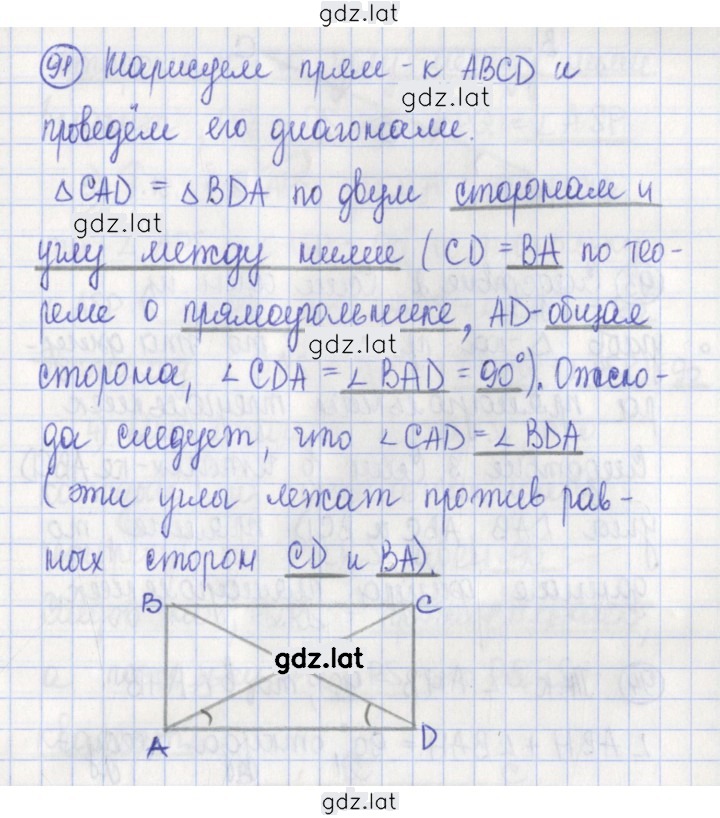 gdz.lat
91 Нарисуем прям-к ABCD и
gdz.lat
проведём его диагоналями.
△CAD = △BDA по двум сторонам и
gdz.lat
углу между ними (CD = BA по тео-
реме о прямоугольнике, AD-общая
gdz.lat
сторона, ∠CDA = ∠BAD = 90°). Отсю-
да следует, что ∠CAD = ∠BDA
(эти углы лежат против рав-
ных сторон CD и BA).
B C
gdz.lat
A D
gdz.lat